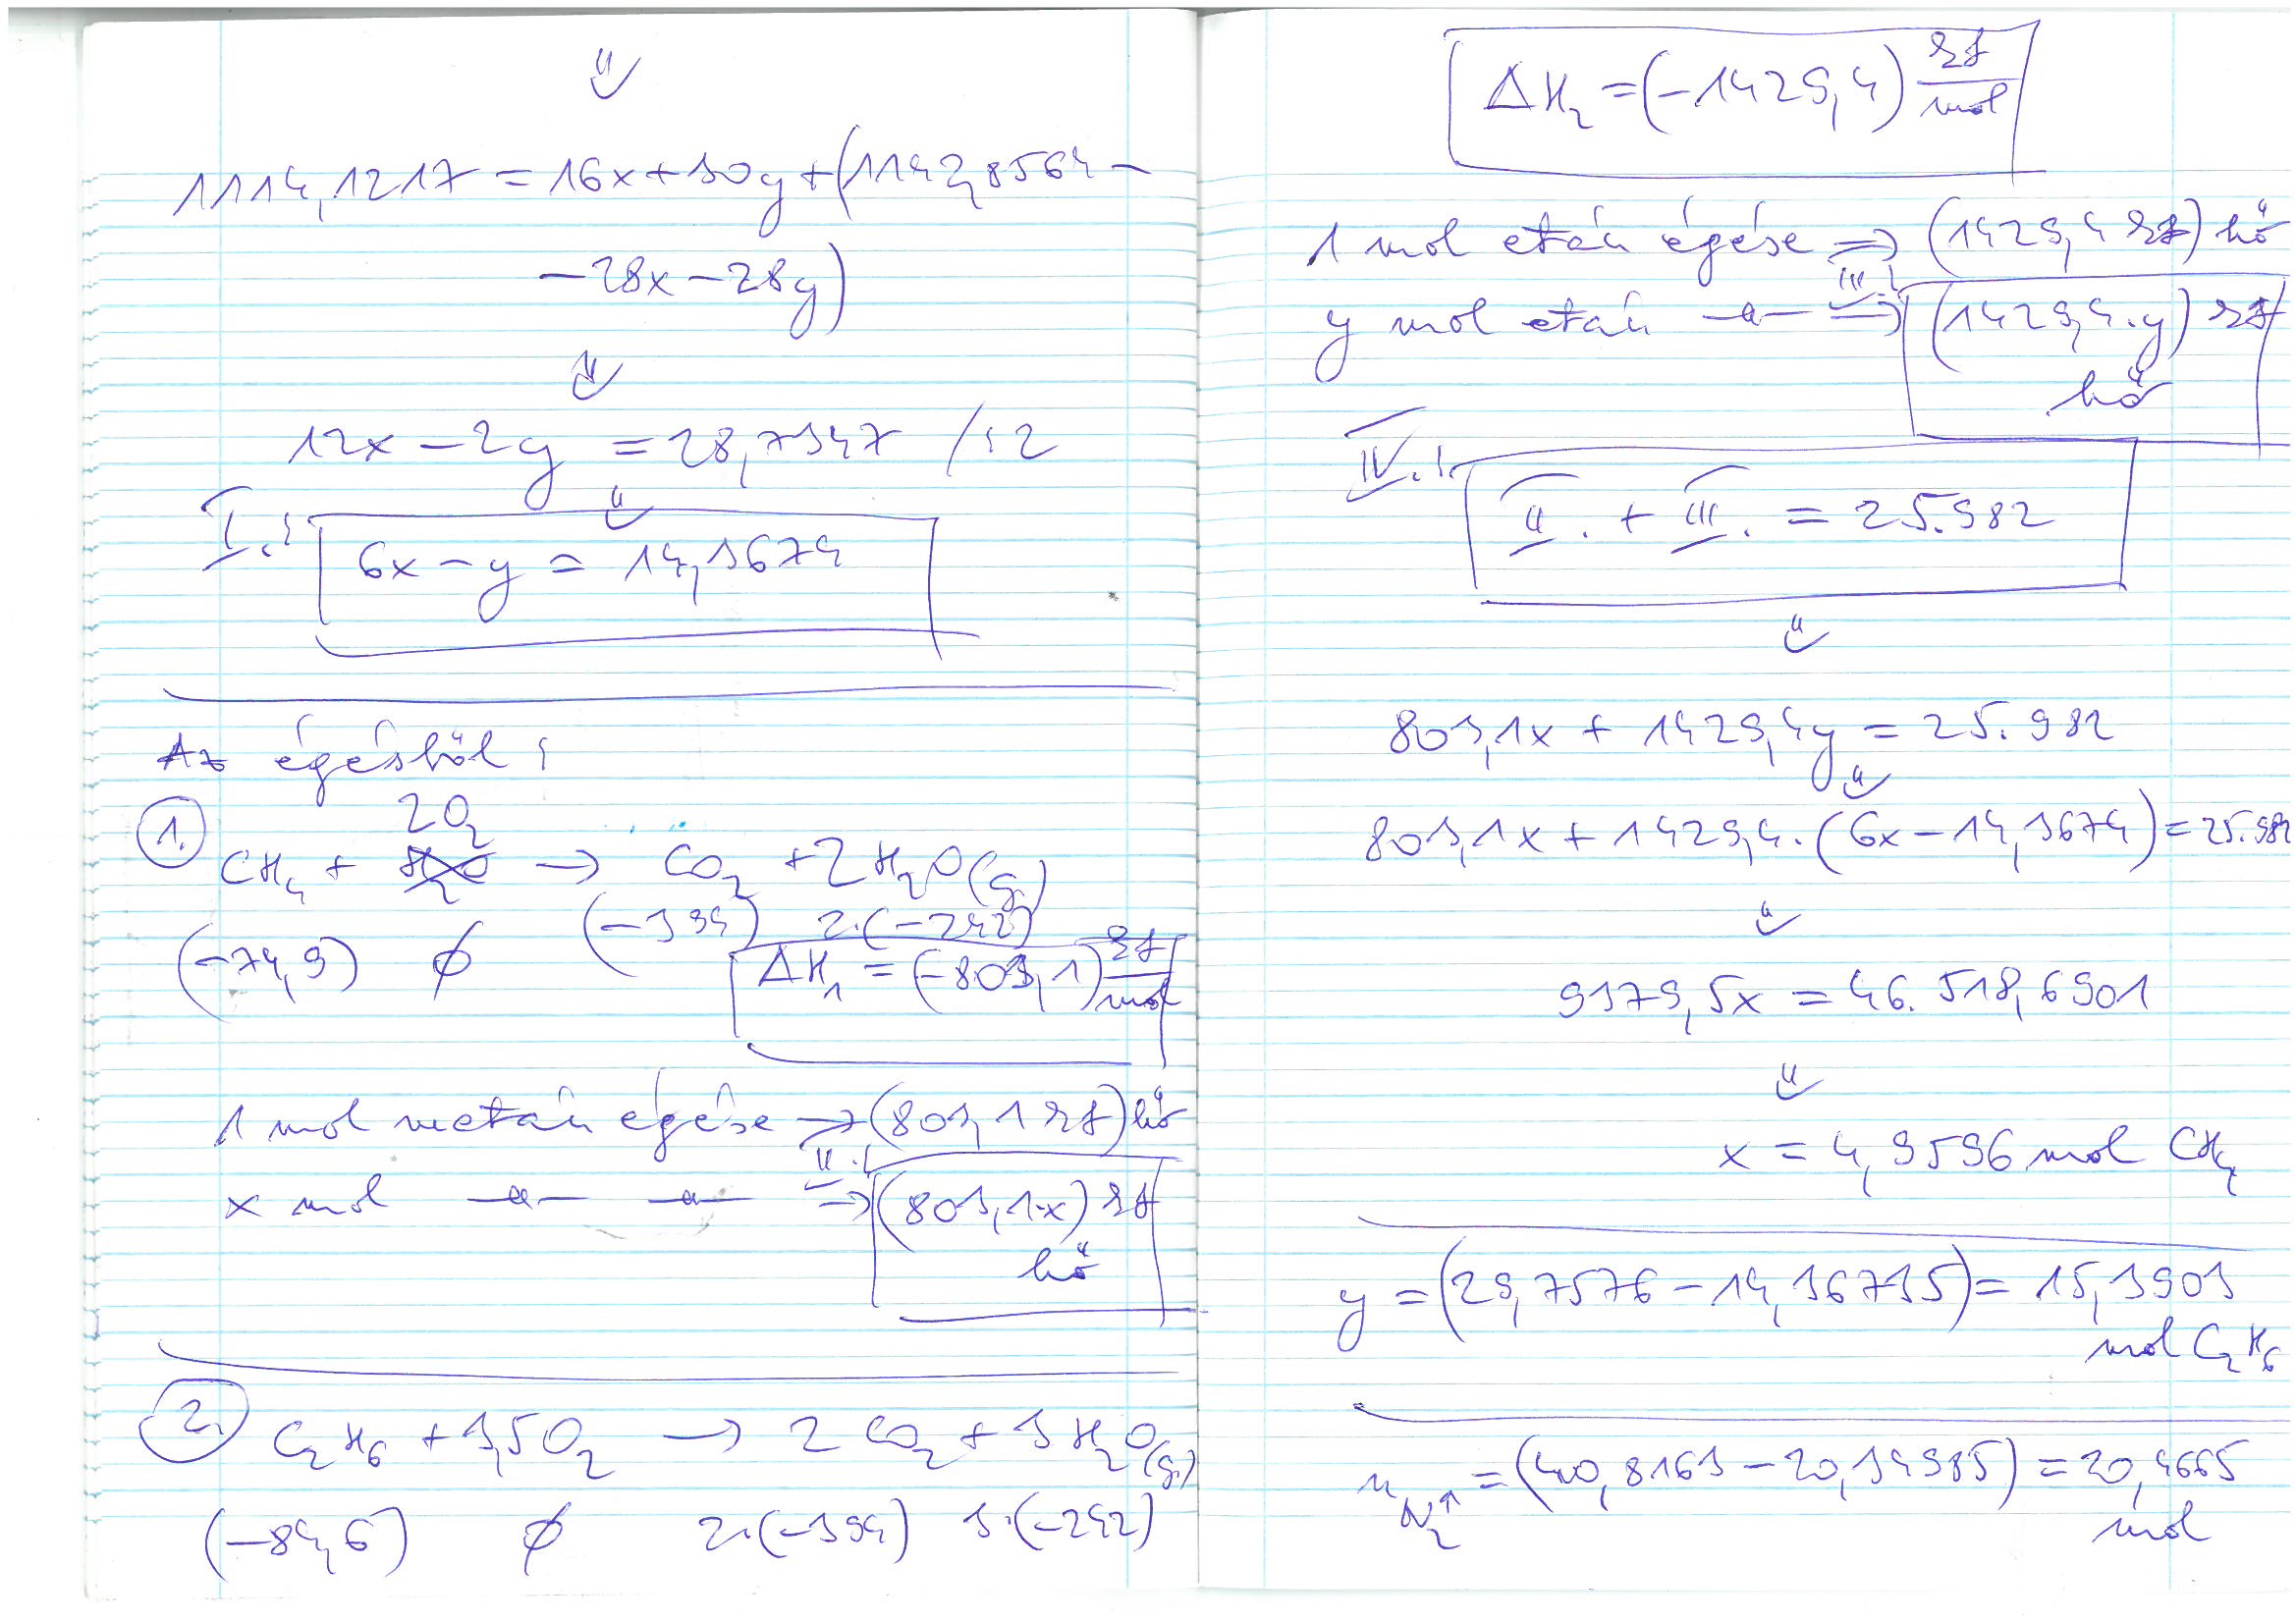 ⇓
1114,1217 = 16x + 30y + (1142,8564 –
– 28x – 28y)
⇓
12x – 2y = 28,7347 /:2
⇓
I.: 6x – y = 14,3674
Az égésből:
1. 2O₂
CH₄ + H₂O → CO₂ + 2H₂O(g)
(–74,9) ∅ (–394) 2·(–242)
ΔH₁ = (–803,1) kJ/mol
1 mol metán égése ⇒ (803,1 kJ) hő
II.:
x mol –"– –"– ⇒ (803,1·x) kJ
hő
2. C₂H₆ + 3,5O₂ → 2CO₂ + 3H₂O(g)
(–84,6) ∅ 2·(–394) 3·(–242)
ΔH₂ = (–1429,4) kJ/mol
1 mol etán égése ⇒ (1429,4 kJ) hő
III.:
y mol etán –"– ⇒ (1429,4·y) kJ
hő
IV.: II. + III. = 25.982
⇓
803,1x + 1429,4y = 25.982
⇓
803,1x + 1429,4·(6x – 14,3674) = 25.982
⇓
9379,5x = 46.518,6901
⇓
x = 4,9596 mol CH₄
y = (29,7576 – 14,36735) = 15,3903
mol C₂H₆
n N₂↑ = (40,8163 – 20,34985) = 20,4665
mol